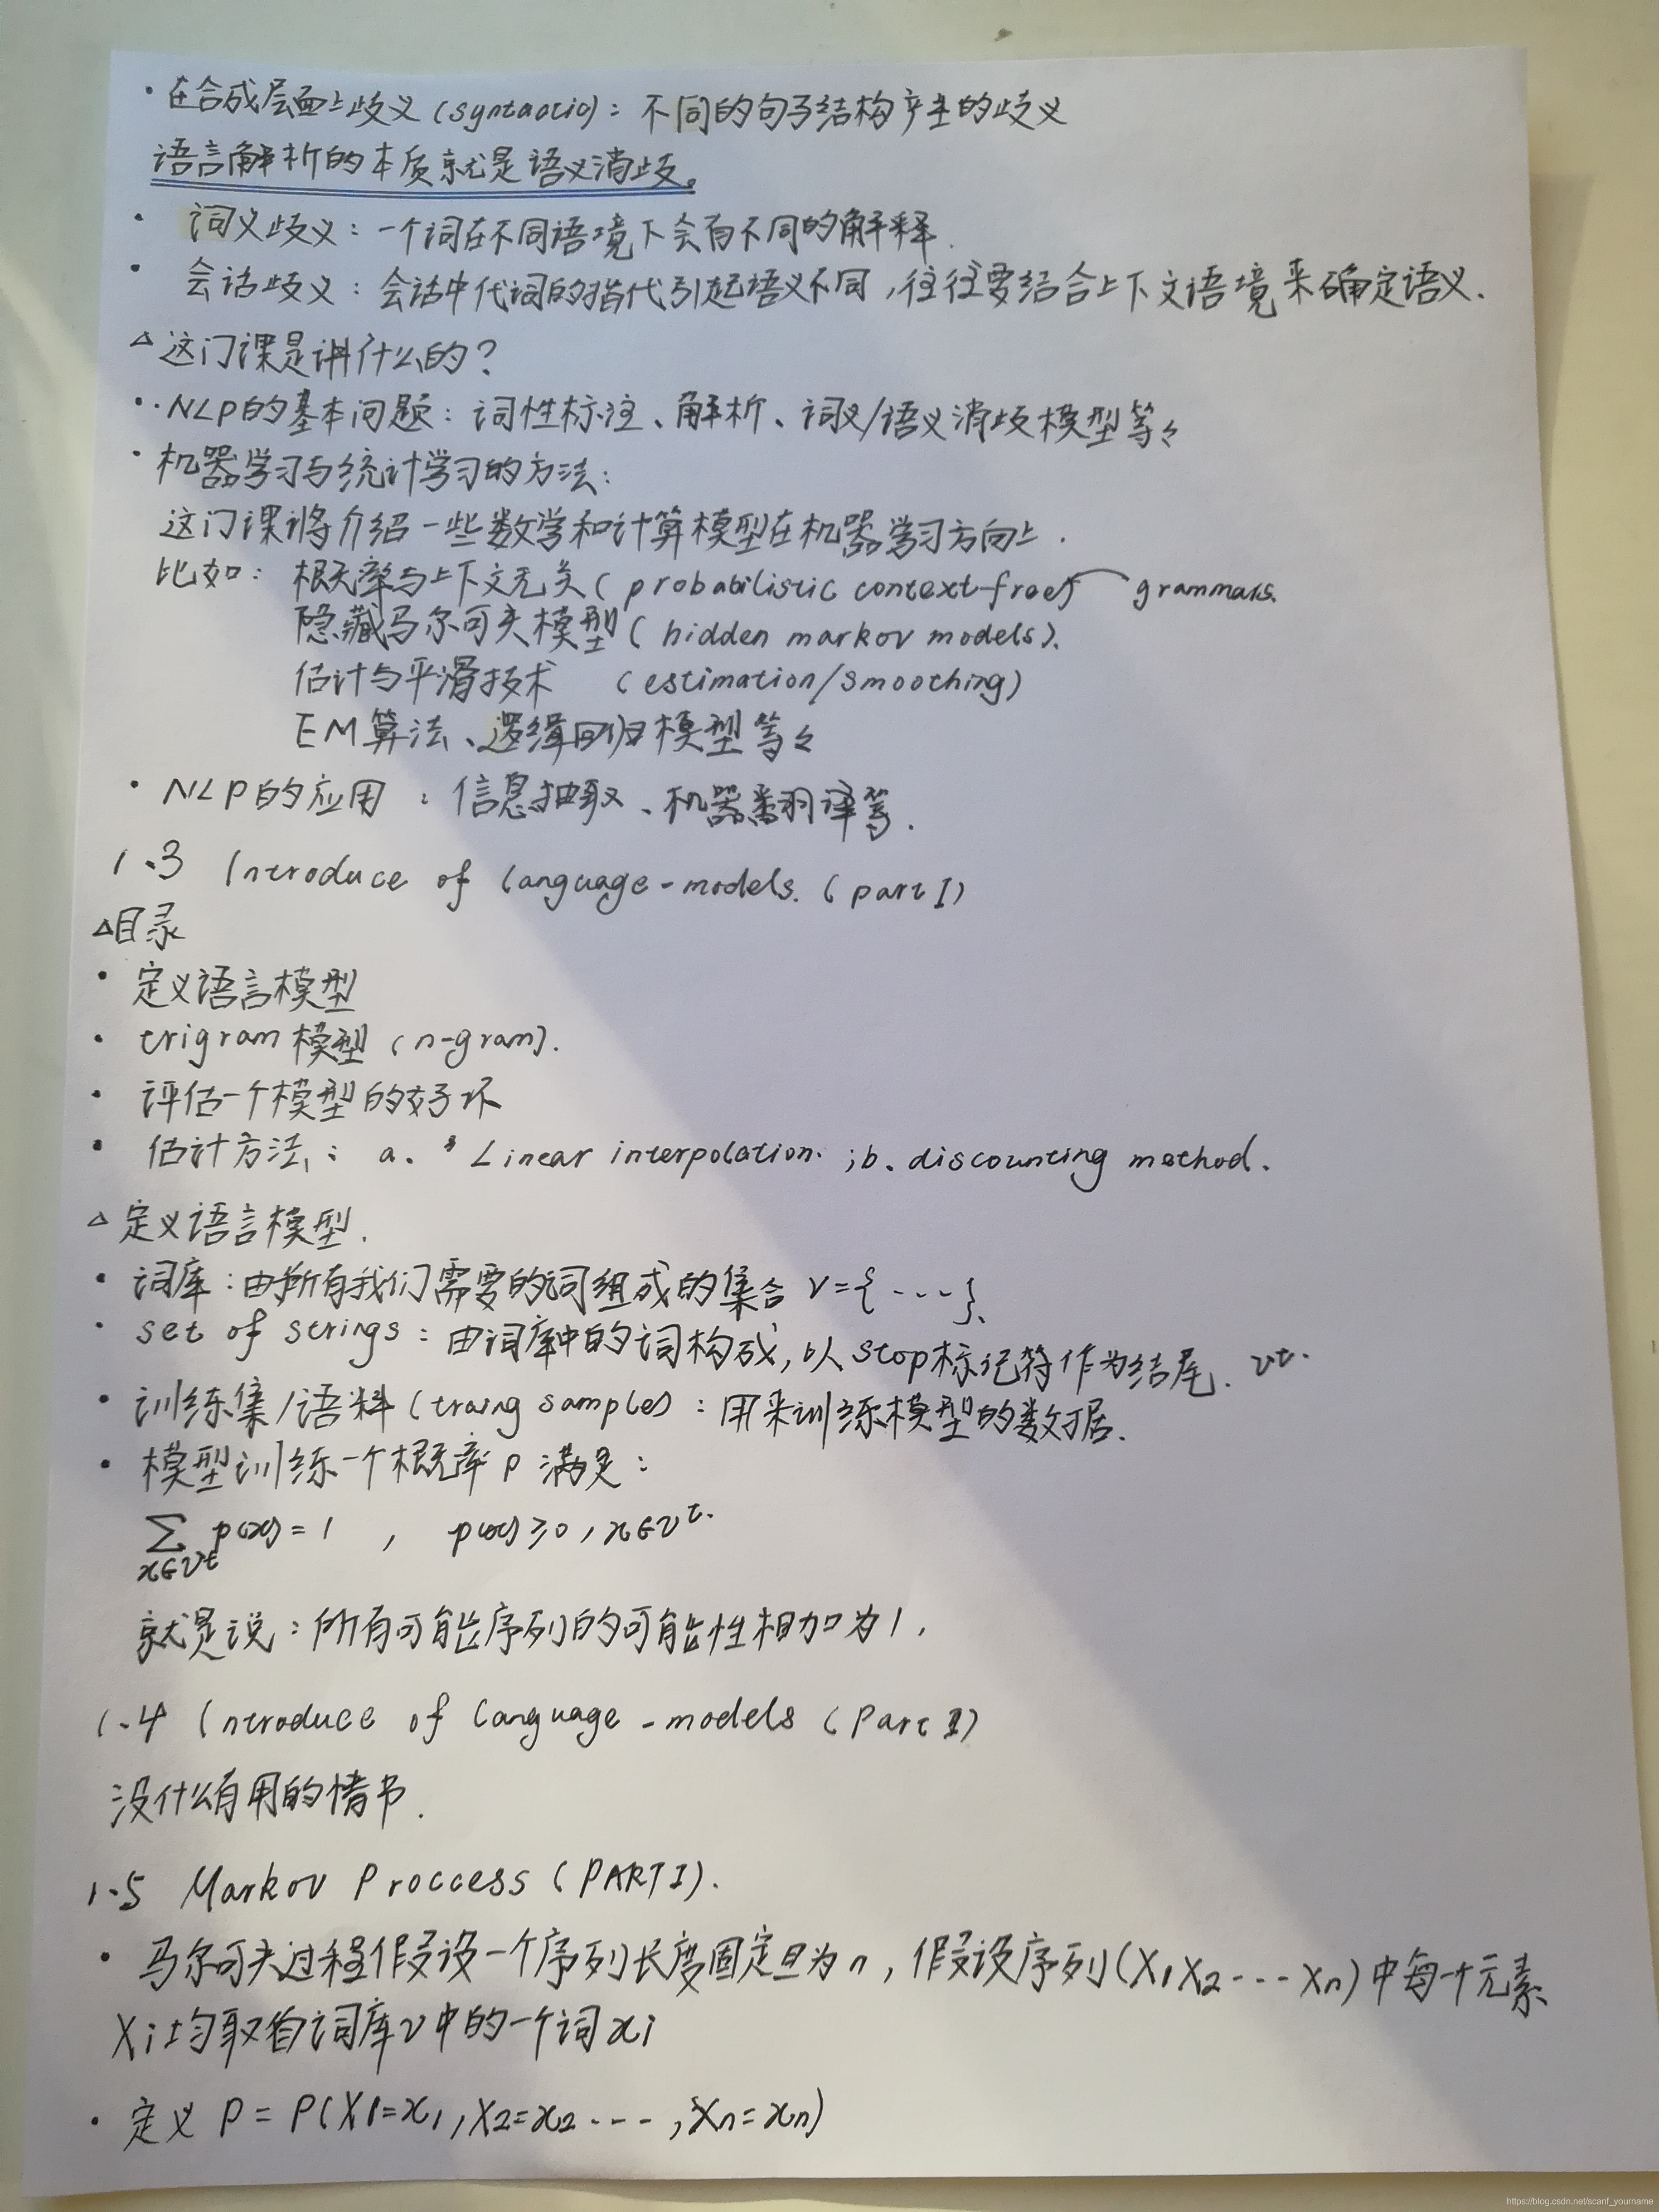 · 在合成层面上歧义(syntactic)：不同的句子结构产生的歧义
语言解析的本质就是语义消歧。
· 词义歧义：一个词在不同语境下会有不同的解释.
· 会话歧义：会话中代词的指代引起语义不同，往往要结合上下文语境来确定语义.
△这门课是讲什么的?
·· NLP的基本问题：词性标注、解析、词义/语义消歧模型等々
· 机器学习与统计学习的方法：
这门课将介绍一些数学和计算模型在机器学习方向上.
比如：概率与上下文无关(probabilistic context-free) grammars.
隐藏马尔可夫模型(hidden markov models).
估计与平滑技术 (estimation/smoothing)
EM算法、逻缉回归模型等々
· NLP的应用：信息抽取、机器翻译等.
1.3 Introduce of language-models.(part I)
△目录
· 定义语言模型
· trigram模型(n-gram).
· 评估一个模型的好坏
· 估计方法：a. Linear interpolation. ;b. discounting method.
△定义语言模型.
· 词库：由所有我们需要的词组成的集合 V={---}、
· set of strings：由词库中的词构成，以stop标记符作为结尾. vt.
· 训练集/语料(traing samples)：用来训练模型的数据.
· 模型训练一个概率p满足：
∑ p(x)=1 , p(x)≥0,x∈vᵗ.
x∈vᵗ
就是说：所有可能序列的可能性相加为1.
1.4 Introduce of language-models (Part II)
没什么有用的情书.
1.5 Markov Proccess(PARTI).
· 马尔可夫过程假设一个序列长度固定且为n，假设序列(X₁X₂---Xn)中每个元素
Xi均取自词库v中的一个词xi
· 定义 P = P(X1=x₁,X2=x2---,Xn=xn)
https://blog.csdn.net/scanf_yourname